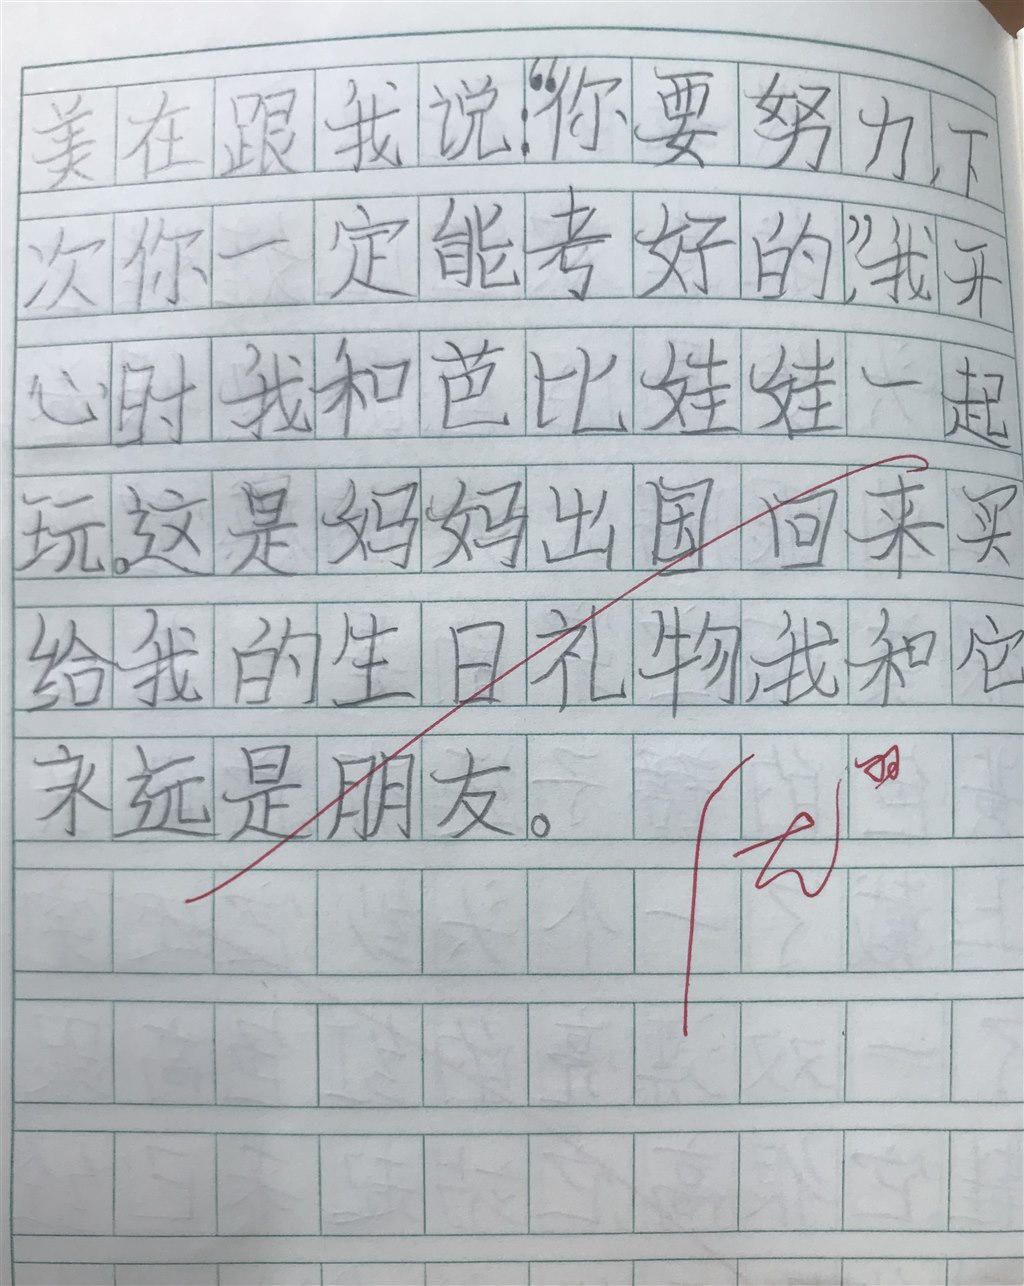 美在跟我说：“你要努力，下
次你一定能考好的，”我开
心时我和芭比娃娃一起
玩。这是妈妈出国回来买
给我的生日礼物，我和它
永远是朋友。
优